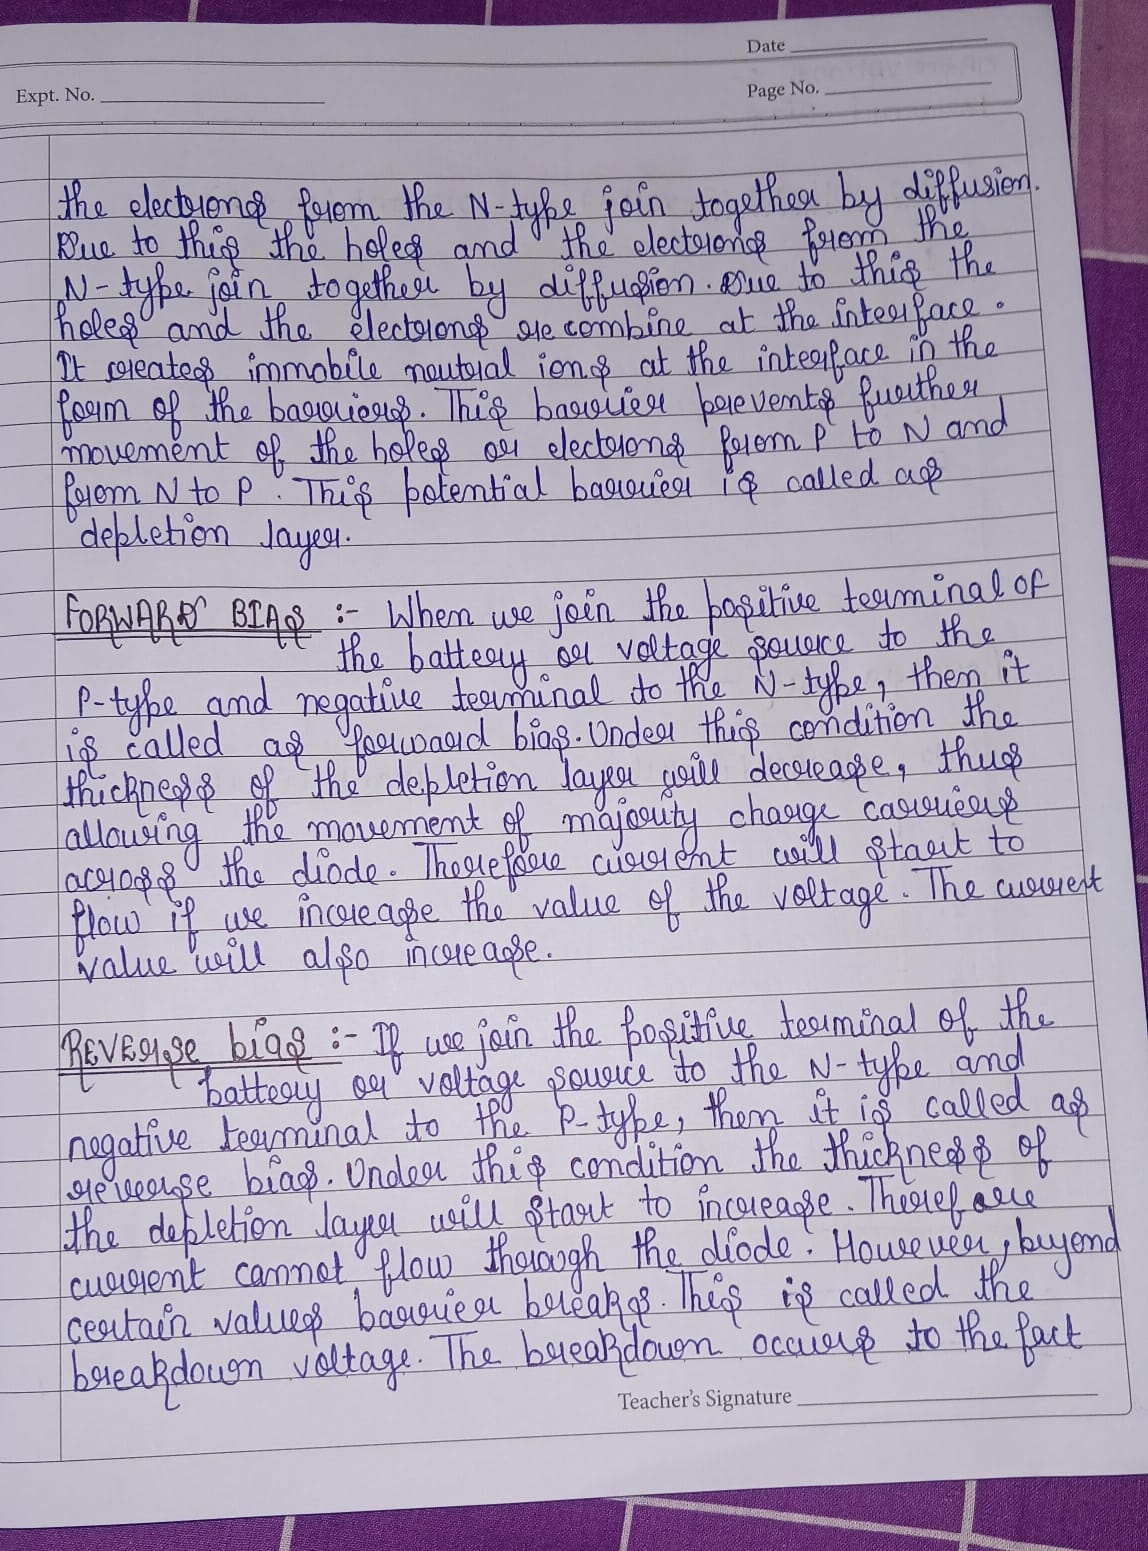 Date
Expt. No.
Page No.
the electrons from the N-type join together by diffusion.
Due to this the holes and the electrons from the
N-type join together by diffusion. Due to this the
holes and the electrons recombine at the interface.
It creates immobile neutral ions at the interface in the
form of the barriers. This barrier prevents further
movement of the holes or electrons from P to N and
from N to P. This potential barrier is called as
depletion layer.
FORWARD BIAS :- When we join the positive terminal of
the battery or voltage source to the
P-type and negative terminal to the N-type, then it
is called as forward bias. Under this condition the
thickness of the depletion layer will decrease, thus
allowing the movement of majority charge carriers
across the diode. Therefore current will start to
flow if we increase the value of the voltage. The current
value will also increase.
REVERSE bias :- If we join the positive terminal of the
battery or voltage source to the N-type and
negative terminal to the P-type, then it is called as
reverse bias. Under this condition the thickness of
the depletion layer will start to increase. Therefore
current cannot flow through the diode. However, beyond
certain values barrier breaks. This is called the
breakdown voltage. The breakdown occurs to the fact
Teacher's Signature